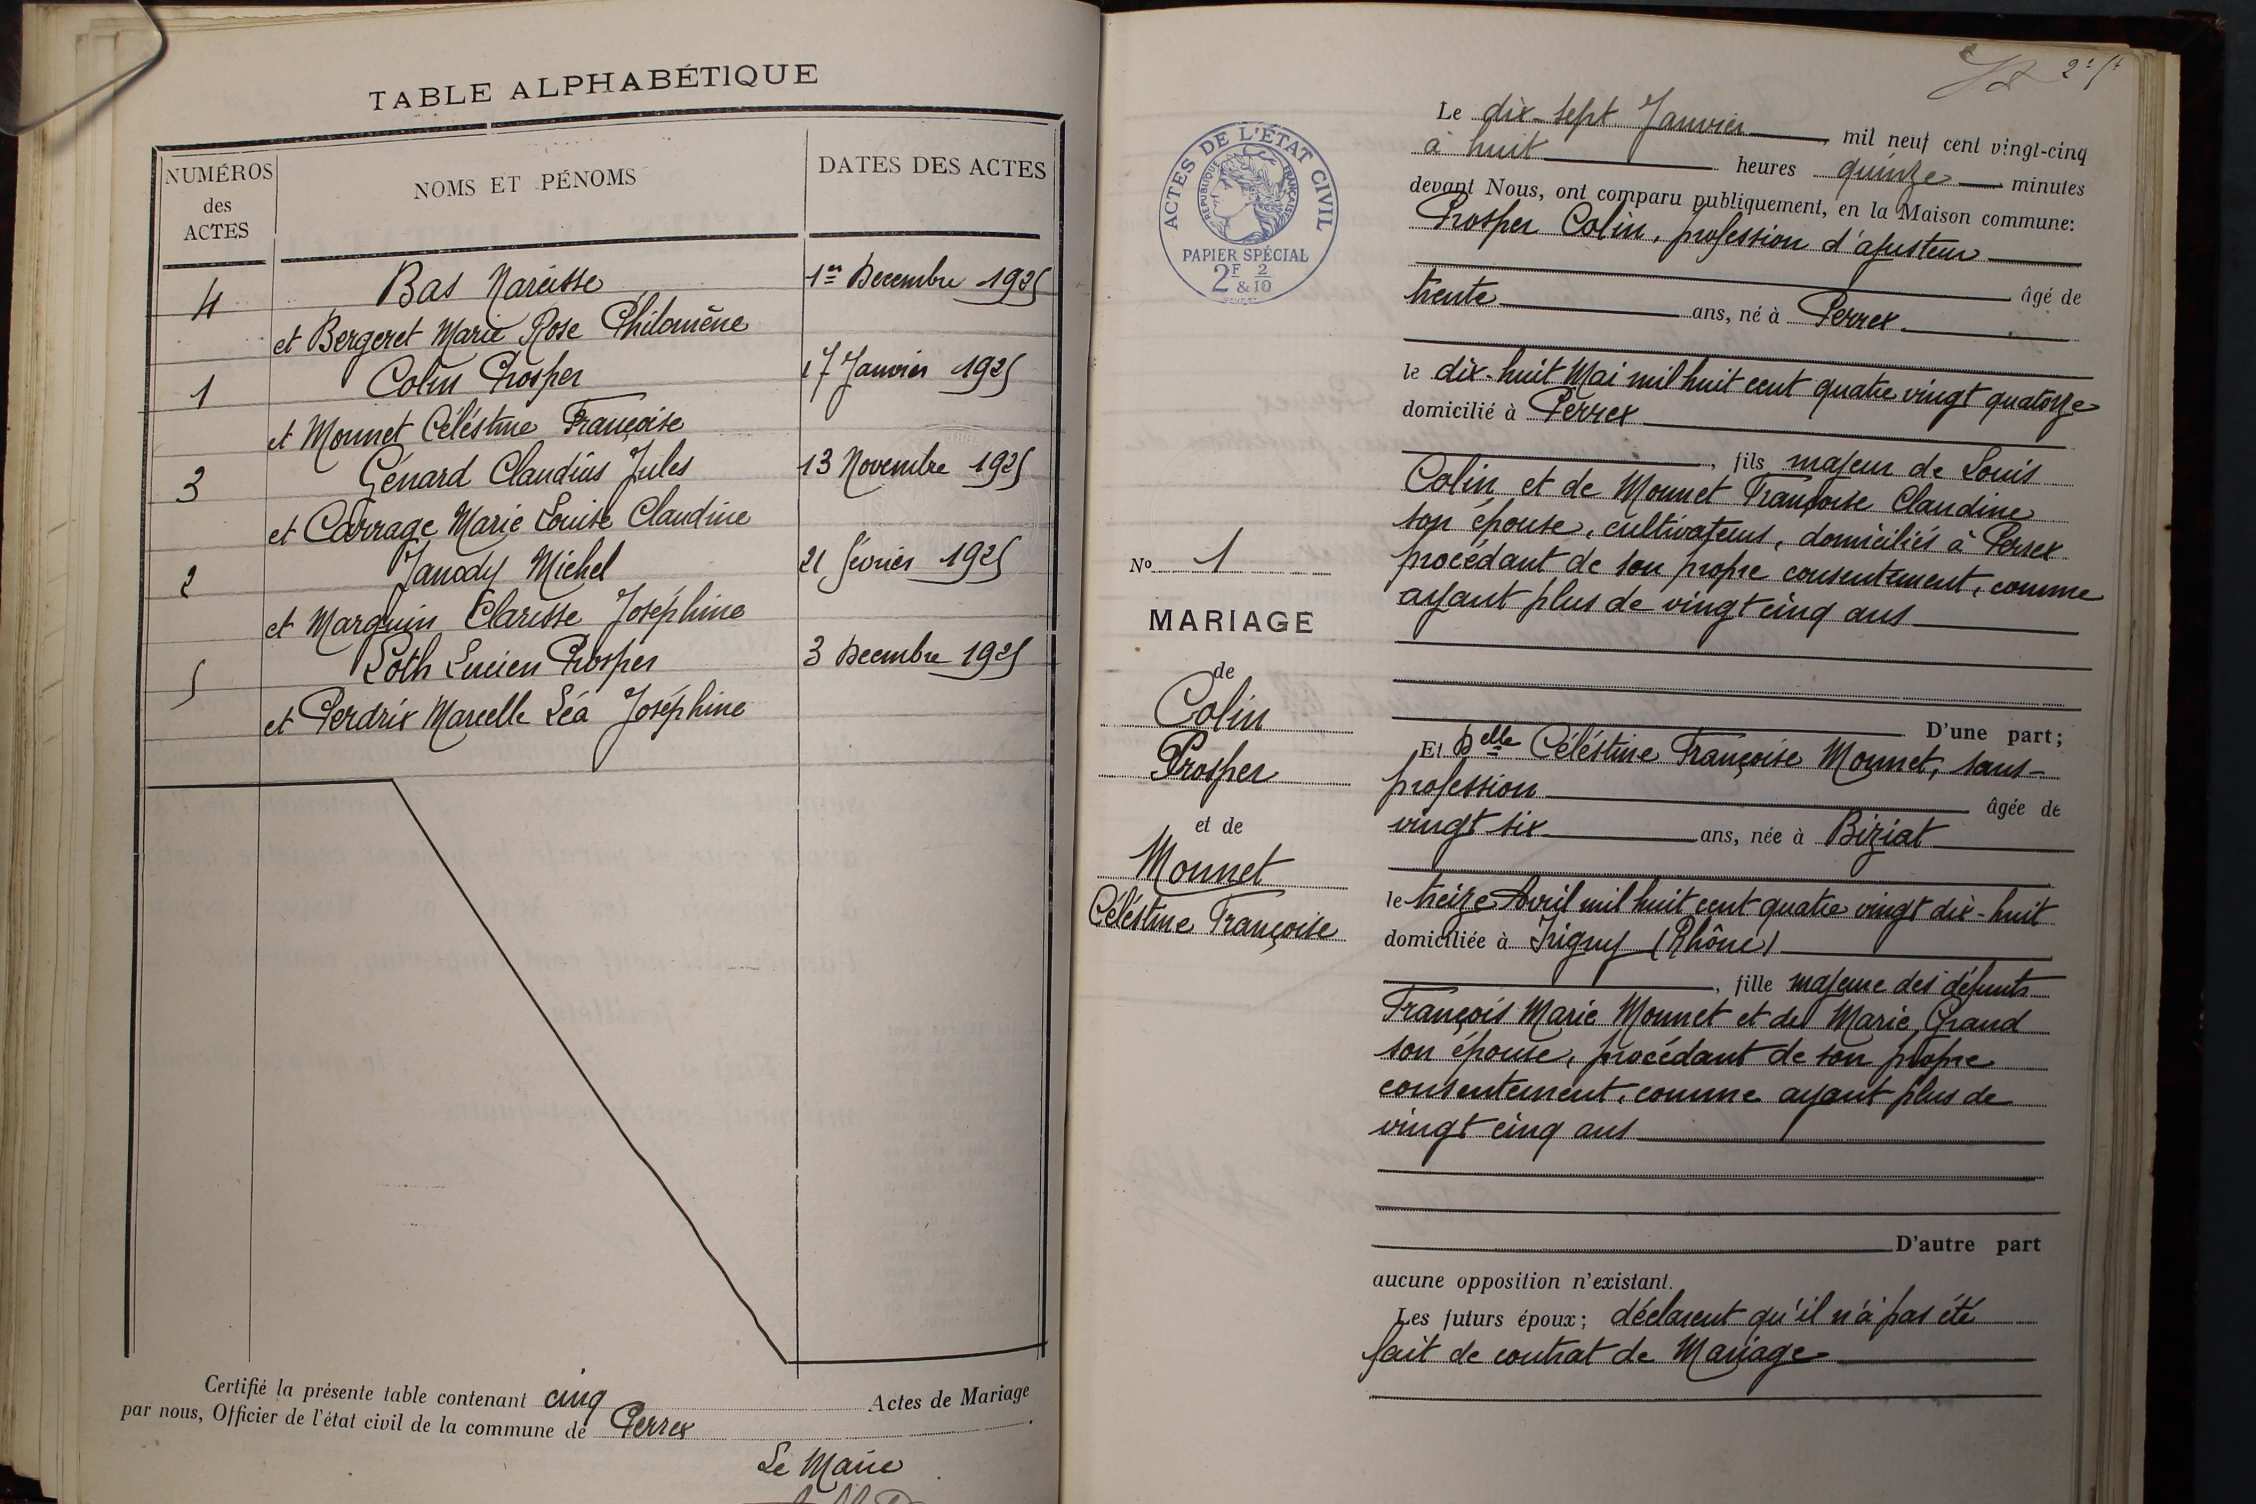 TABLE ALPHABÉTIQUE
NUMÉROS
des
ACTES
NOMS ET PÉNOMS
DATES DES ACTES
4 Bas Narcisse 1er Decembre 1925
et Bergeret Marie Rose Philomène
1 Colin Prosper 17 Janvier 1925
et Monnet Céléstine Françoise
3 Génard Claudius Jules 13 Novembre 1925
et Carrage Marie Louise Claudine
2 Janody Michel 21 février 1925
et Marguin Clarisse Joséphine
5 Loth Lucien Prosper 3 Decembre 1925
et Perdrix Marcelle Léa Joséphine
Certifié la présente table contenant cinq Actes de Mariage
par nous, Officier de l'état civil de la commune de Perrex
Le Maire
ACTES DE L'ÉTAT CIVIL
RÉPUBLIQUE FRANÇAISE
PAPIER SPÉCIAL
2F & 2/10
No 1
MARIAGE
de
Colin
Prosper
et de
Monnet
Céléstine Françoise
Le dix-sept Janvier mil neuf cent vingt-cinq
à huit heures quinze minutes
devant Nous, ont comparu publiquement, en la Maison commune:
Prosper Colin, profession d'ajusteur
âgé de
trente ans, né à Perrex
le dix-huit Mai mil huit cent quatre vingt quatorze
domicilié à Perrex
, fils majeur de Louis
Colin et de Monnet Françoise Claudine
son épouse, cultivateurs, domiciliés à Perrex
procédant de son propre consentement, comme
ayant plus de vingt cinq ans
D'une part;
Et Delle Céléstine Françoise Monnet, sans-
profession âgée de
vingt six ans, née à Biziat
le treize Avril mil huit cent quatre vingt dix-huit
domiciliée à Irigny (Rhône)
, fille majeure des défunts
François Marie Monnet et de Marie Grand
son épouse, procédant de son propre
consentement, comme ayant plus de
vingt cinq ans
D'autre part
aucune opposition n'existant.
Les futurs époux; déclarent qu'il n'a pas été
fait de contrat de Mariage